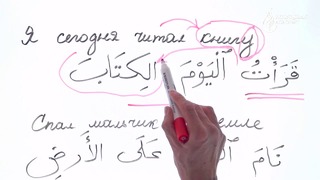 Я сегодня читал книгу
قَرَأْتُ ٱلْيَوْمَ الِكَتَابَ
Спал мальчик
نَامَ عَلَى الأَرضِ